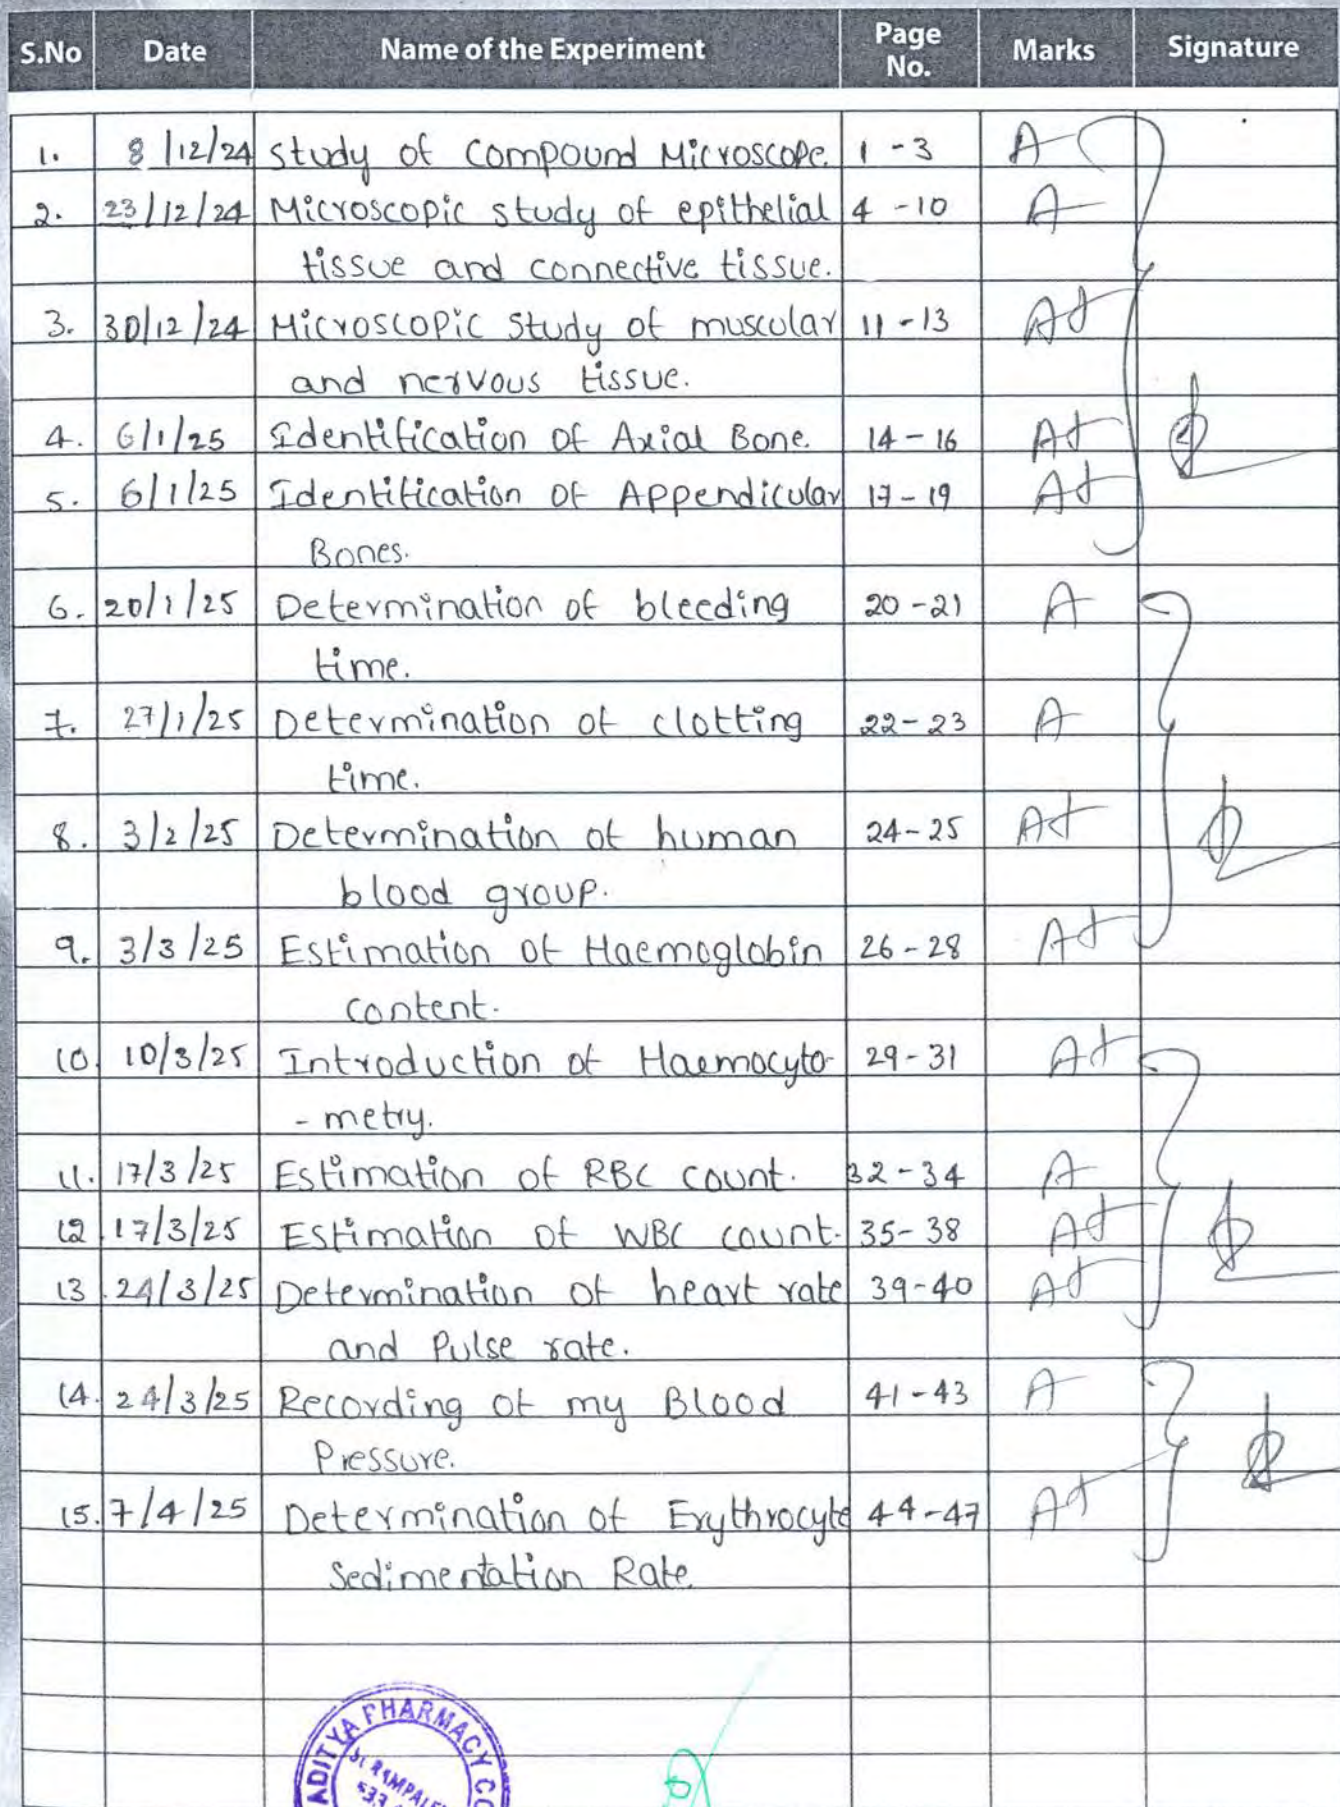 S.No Date Name of the Experiment Page No. Marks Signature
1. 8/12/24 Study of Compound Microscope. 1-3 A
2. 23/12/24 Microscopic study of epithelial 4-10 A
tissue and connective tissue.
3. 30/12/24 Microscopic study of muscular 11-13 A+
and nervous tissue.
4. 6/1/25 Identification of Axial Bone. 14-16 A+
5. 6/1/25 Identification of Appendicular 17-19 A+
Bones.
6. 20/1/25 Determination of bleeding 20-21 A
time.
7. 27/1/25 Determination of clotting 22-23 A
time.
8. 3/2/25 Determination of human 24-25 A+
blood group.
9. 3/3/25 Estimation of Haemoglobin 26-28 A+
content.
10. 10/3/25 Introduction of Haemocyto- 29-31 A+
- metry.
11. 17/3/25 Estimation of RBC count. 32-34 A
12. 17/3/25 Estimation of WBC count. 35-38 A+
13. 24/3/25 Determination of heart rate 39-40 A+
and Pulse rate.
14. 24/3/25 Recording of my Blood 41-43 A
Pressure.
15. 7/4/25 Determination of Erythrocyte 44-47 A+
Sedimentation Rate.
ADITYA PHARMACY CO